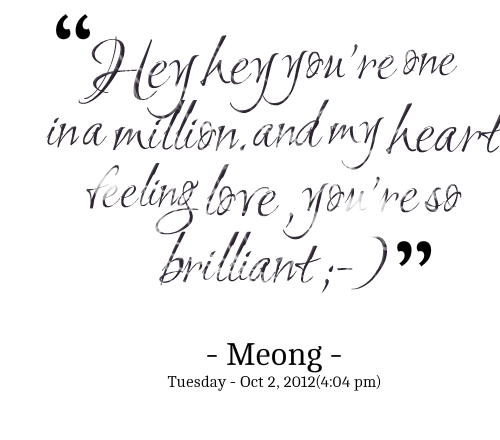 “Hey hey you're one
in a million. and my heart
feeling love , you're so
brilliant ;-)”
- Meong -
Tuesday - Oct 2, 2012(4:04 pm)